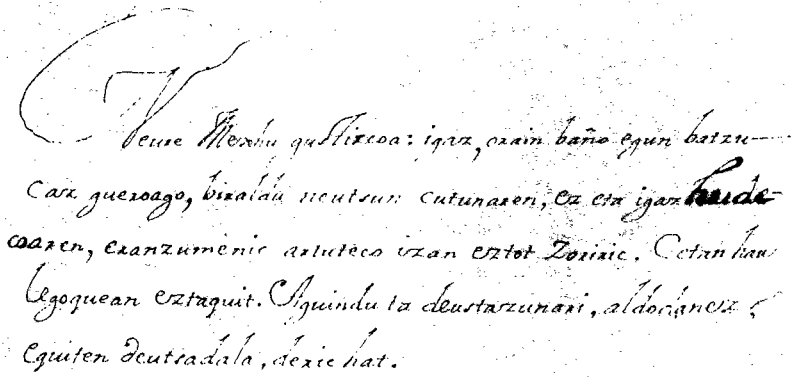 Neure Maxhu gustizcoa: igaz, orain baño egun batzu-
caz gueroago, biraldu neutsun cutunaren, ez eta igaz
coaren, eranzumenic artuteco izan eztot Zoriric. Cetan hau
legoquean eztaquit. Aguindu ta deustazunari, aldodanez
eguiten deutsadala, deric hat.